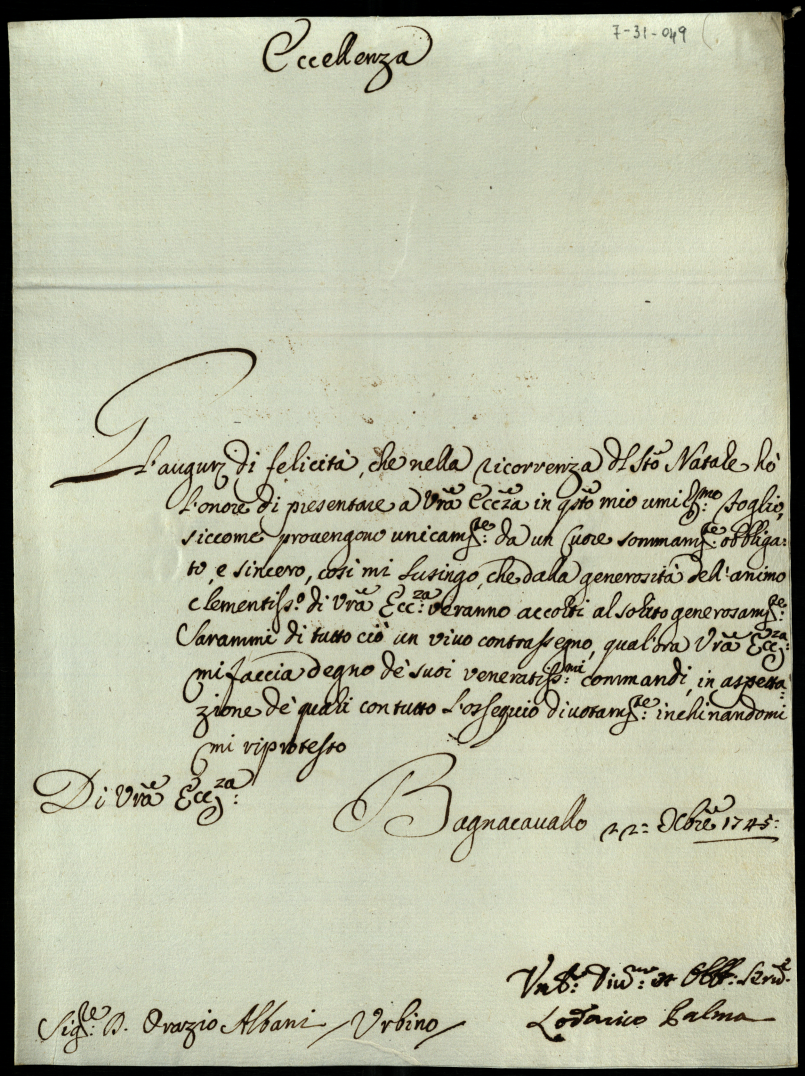 7-31-049
Eccellenza
Gl'augurj di felicità, che nella ricorrenza del Sto Natale hò
l'onore di presentare a Vrã Eccza in qsto mio umilsmo Foglio,
siccome provengono unicamte da un Cuore sommamte obbliga-
to, e sincero, così mi lusingo, che dalla generosità dell'animo
clementisso di Vrã Eccza veranno accolti al solito generosamte.
Sarammi di tutto ciò un vivo contrassegno, qual'ora Vrã Eccza
mi faccia degno de' suoi veneratissmi commandi, in aspetta-
zione de' quali con tutto l'ossequio divotamte inchinandomi
mi riprotesto
Di Vrã Eccza
Bagnacavallo 22: Xbre 1745:
Divmo Obbl. Serve
Sigre D. Orazio Albani / Urbino /
Lodovico Palma